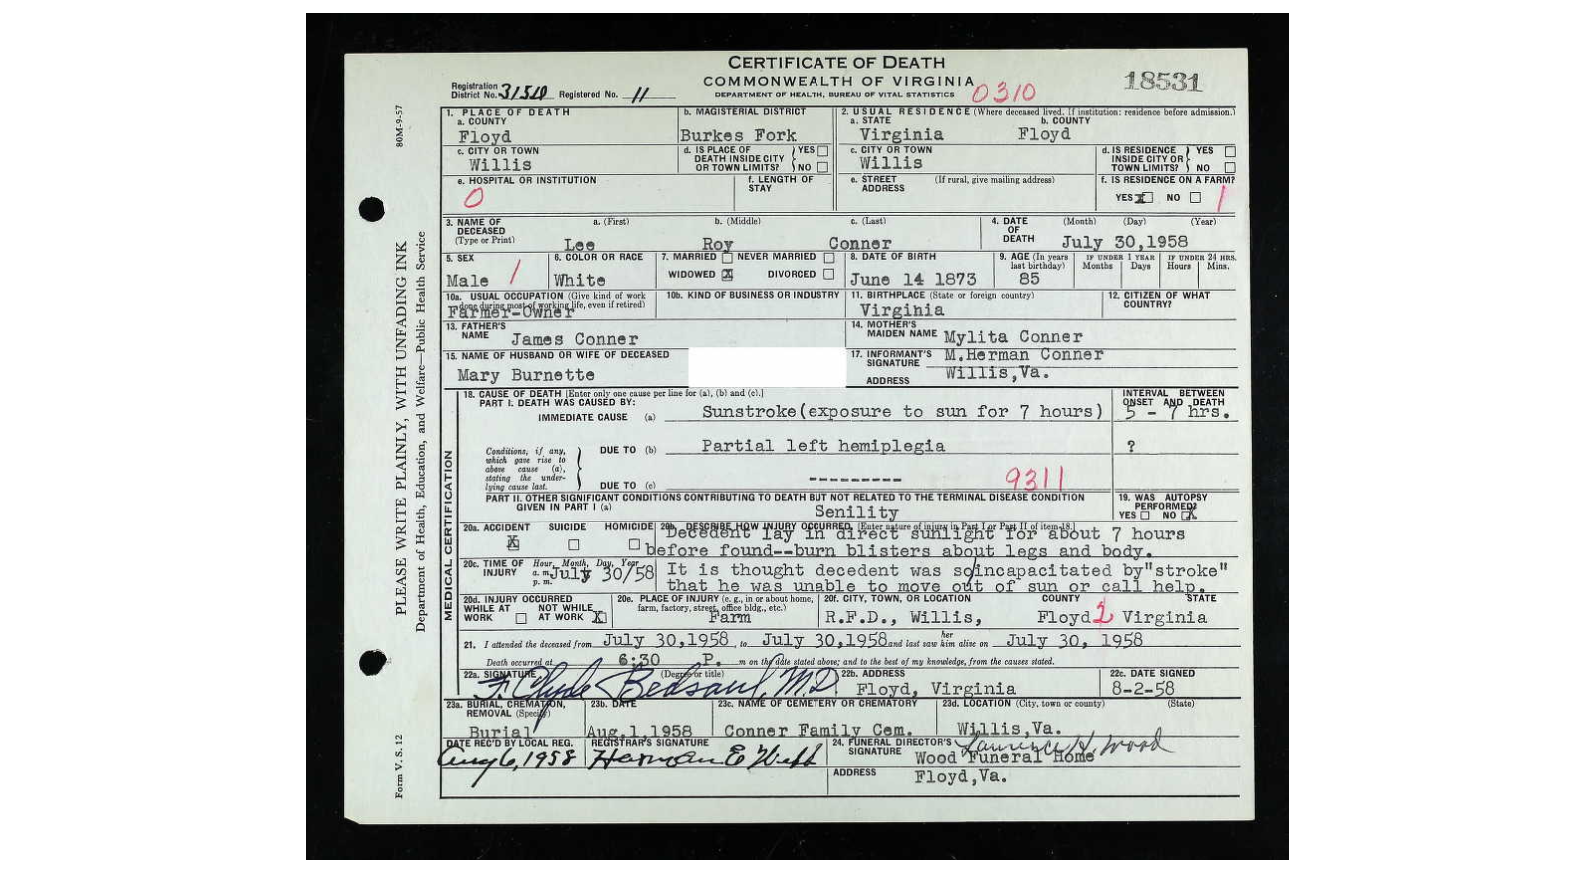 CERTIFICATE OF DEATH
COMMONWEALTH OF VIRGINIA
DEPARTMENT OF HEALTH, BUREAU OF VITAL STATISTICS
0310
18531
Registration District No. 31510 Registered No. 11
80M-9-57
PLEASE WRITE PLAINLY, WITH UNFADING INK
Department of Health, Education, and Welfare—Public Health Service
Form V. S. 12
1. PLACE OF DEATH
a. COUNTY
Floyd
b. MAGISTERIAL DISTRICT
Burkes Fork
2. USUAL RESIDENCE (Where deceased lived. If institution: residence before admission.)
a. STATE b. COUNTY
Virginia Floyd
c. CITY OR TOWN
Willis
d. IS PLACE OF DEATH INSIDE CITY OR TOWN LIMITS? YES NO
c. CITY OR TOWN
Willis
d. IS RESIDENCE INSIDE CITY OR TOWN LIMITS? YES NO
e. HOSPITAL OR INSTITUTION
0
f. LENGTH OF STAY
e. STREET ADDRESS (If rural, give mailing address)
f. IS RESIDENCE ON A FARM?
YES X NO 1
3. NAME OF DECEASED (Type or Print)
a. (First) b. (Middle) c. (Last)
Lee Roy Conner
4. DATE OF DEATH (Month) (Day) (Year)
July 30,1958
5. SEX
Male 1
6. COLOR OR RACE
White
7. MARRIED NEVER MARRIED
WIDOWED X DIVORCED
8. DATE OF BIRTH
June 14 1873
9. AGE (In years last birthday)
85
IF UNDER 1 YEAR
Months Days
IF UNDER 24 HRS.
Hours Mins.
10a. USUAL OCCUPATION (Give kind of work done during most of working life, even if retired)
Farmer-Owner
10b. KIND OF BUSINESS OR INDUSTRY
11. BIRTHPLACE (State or foreign country)
Virginia
12. CITIZEN OF WHAT COUNTRY?
13. FATHER'S NAME James Conner
14. MOTHER'S MAIDEN NAME Mylita Conner
15. NAME OF HUSBAND OR WIFE OF DECEASED
Mary Burnette
17. INFORMANT'S SIGNATURE M.Herman Conner
ADDRESS Willis,Va.
MEDICAL CERTIFICATION
18. CAUSE OF DEATH [Enter only one cause per line for (a), (b) and (c).]
PART I. DEATH WAS CAUSED BY:
INTERVAL BETWEEN ONSET AND DEATH
IMMEDIATE CAUSE (a) Sunstroke(exposure to sun for 7 hours) 5 - 7 hrs.
Conditions, if any, which gave rise to above cause (a), stating the underlying cause last.
DUE TO (b) Partial left hemiplegia ?
DUE TO (c) ---------
9311
PART II. OTHER SIGNIFICANT CONDITIONS CONTRIBUTING TO DEATH BUT NOT RELATED TO THE TERMINAL DISEASE CONDITION GIVEN IN PART I (a)
Senility
19. WAS AUTOPSY PERFORMED?
YES NO X
20a. ACCIDENT SUICIDE HOMICIDE
X
20b. DESCRIBE HOW INJURY OCCURRED. [Enter nature of injury in Part I or Part II of item 18.]
Decedent lay in direct sunlight for about 7 hours
before found--burn blisters about legs and body.
20c. TIME OF INJURY Hour, Month, Day, Year
a. m.
p. m.
July 30/58
It is thought decedent was so incapacitated by"stroke"
that he was unable to move out of sun or call help.
20d. INJURY OCCURRED
WHILE AT WORK NOT WHILE AT WORK X
20e. PLACE OF INJURY (e. g., in or about home, farm, factory, street, office bldg., etc.)
Farm
20f. CITY, TOWN, OR LOCATION COUNTY STATE
R.F.D., Willis, Floyd 2 Virginia
21. I attended the deceased from July 30,1958, to July 30,1958 and last saw her him alive on July 30, 1958
Death occurred at 6:30 P. m on the date stated above; and to the best of my knowledge, from the causes stated.
22a. SIGNATURE (Degree or title)
F. Clyde Bedsaul, M.D.
22b. ADDRESS
Floyd, Virginia
22c. DATE SIGNED
8-2-58
23a. BURIAL, CREMATION, REMOVAL (Specify)
Burial
23b. DATE
Aug.1,1958
23c. NAME OF CEMETERY OR CREMATORY
Conner Family Cem.
23d. LOCATION (City, town or county) (State)
Willis,Va.
DATE REC'D BY LOCAL REG.
Aug 6, 1958
REGISTRAR'S SIGNATURE
Harman E Webb
24. FUNERAL DIRECTOR'S SIGNATURE Laurence H. Wood
Wood Funeral Home
ADDRESS Floyd,Va.